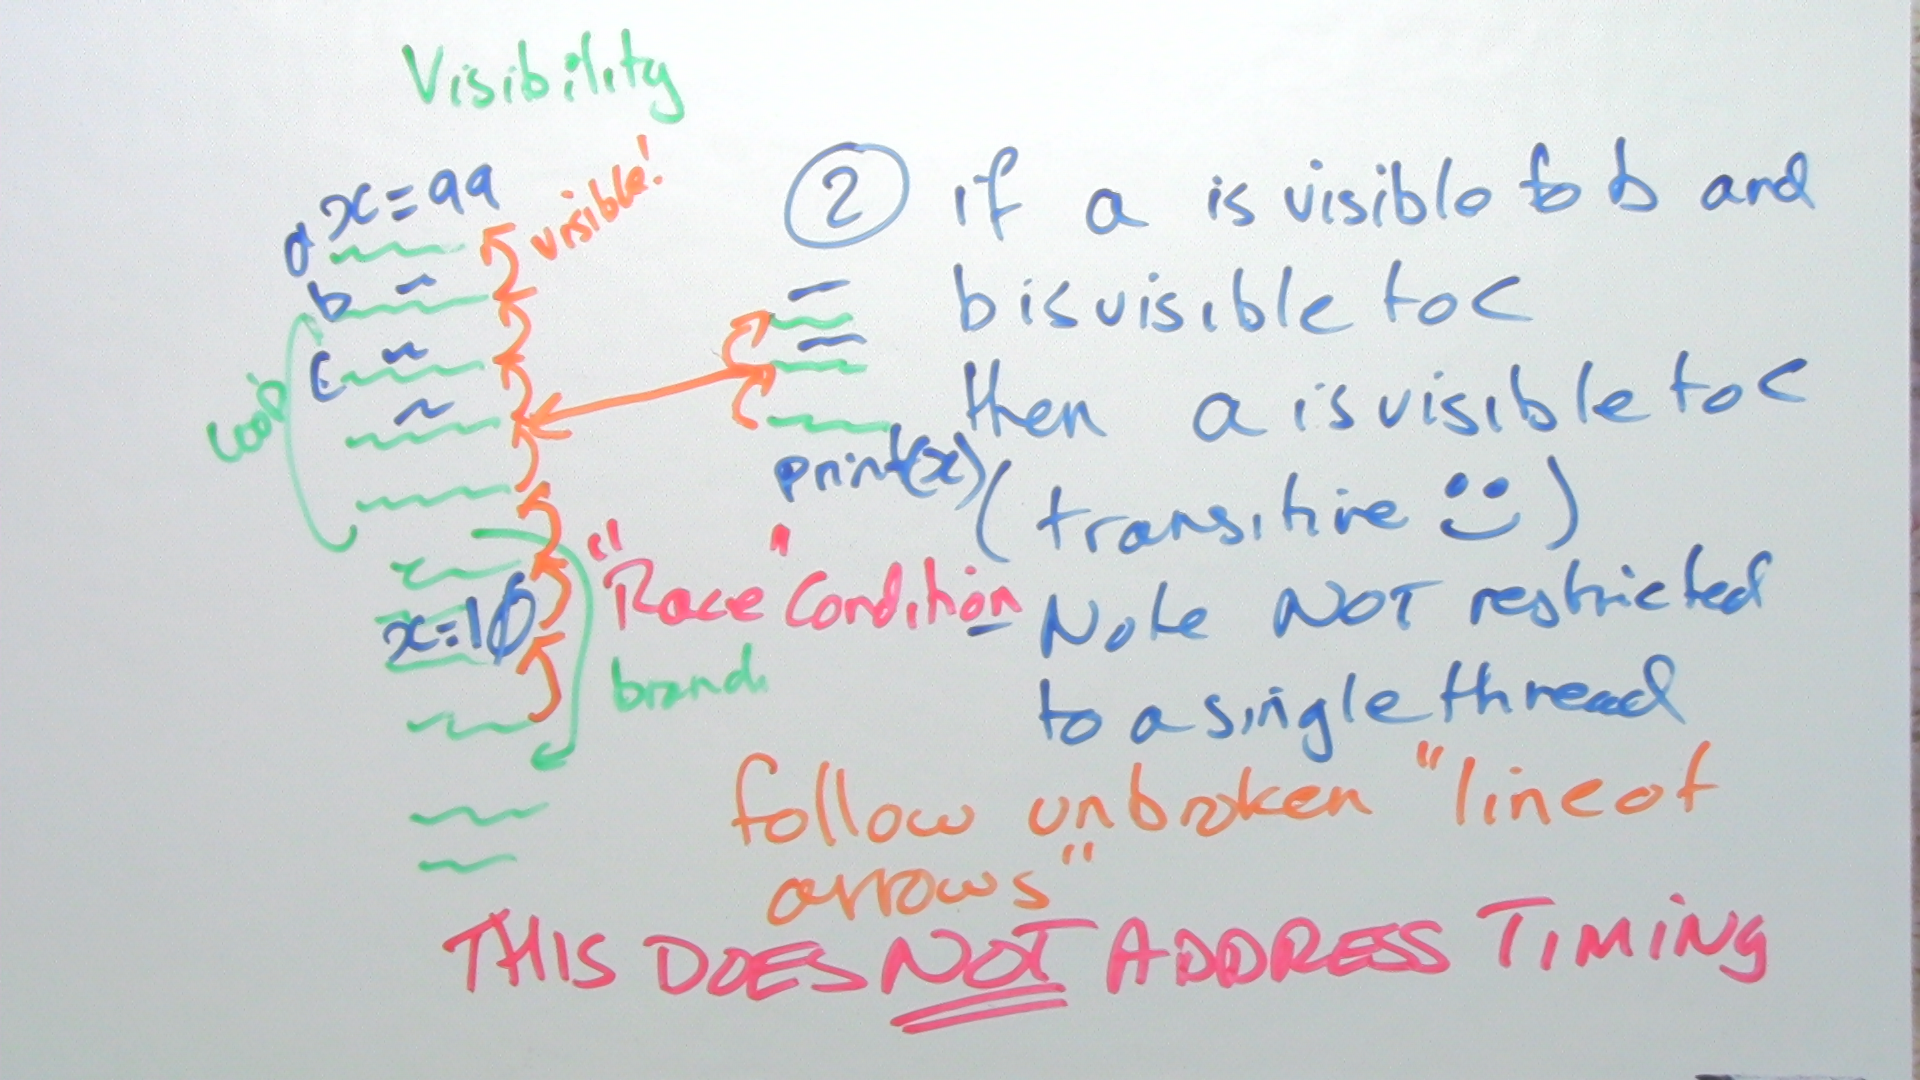 Visibility
x=99
visible!
a
b
c
loop
x=10
"Race" Condition
branch
print(x)
2 if a is visible to b and
b is visible to c
then a is visible to c
(transitive)
Note NOT restricted
to a single thread
follow unbroken "line of
arrows"
THIS DOES NOT ADDRESS TIMING